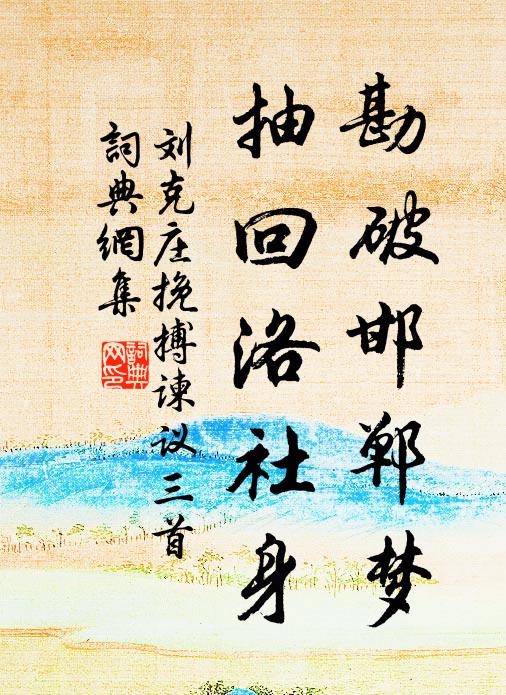 勘破邯郸梦
抽回洛社身
刘克庄挽搏谏议三首
詞典網集
詞典網印